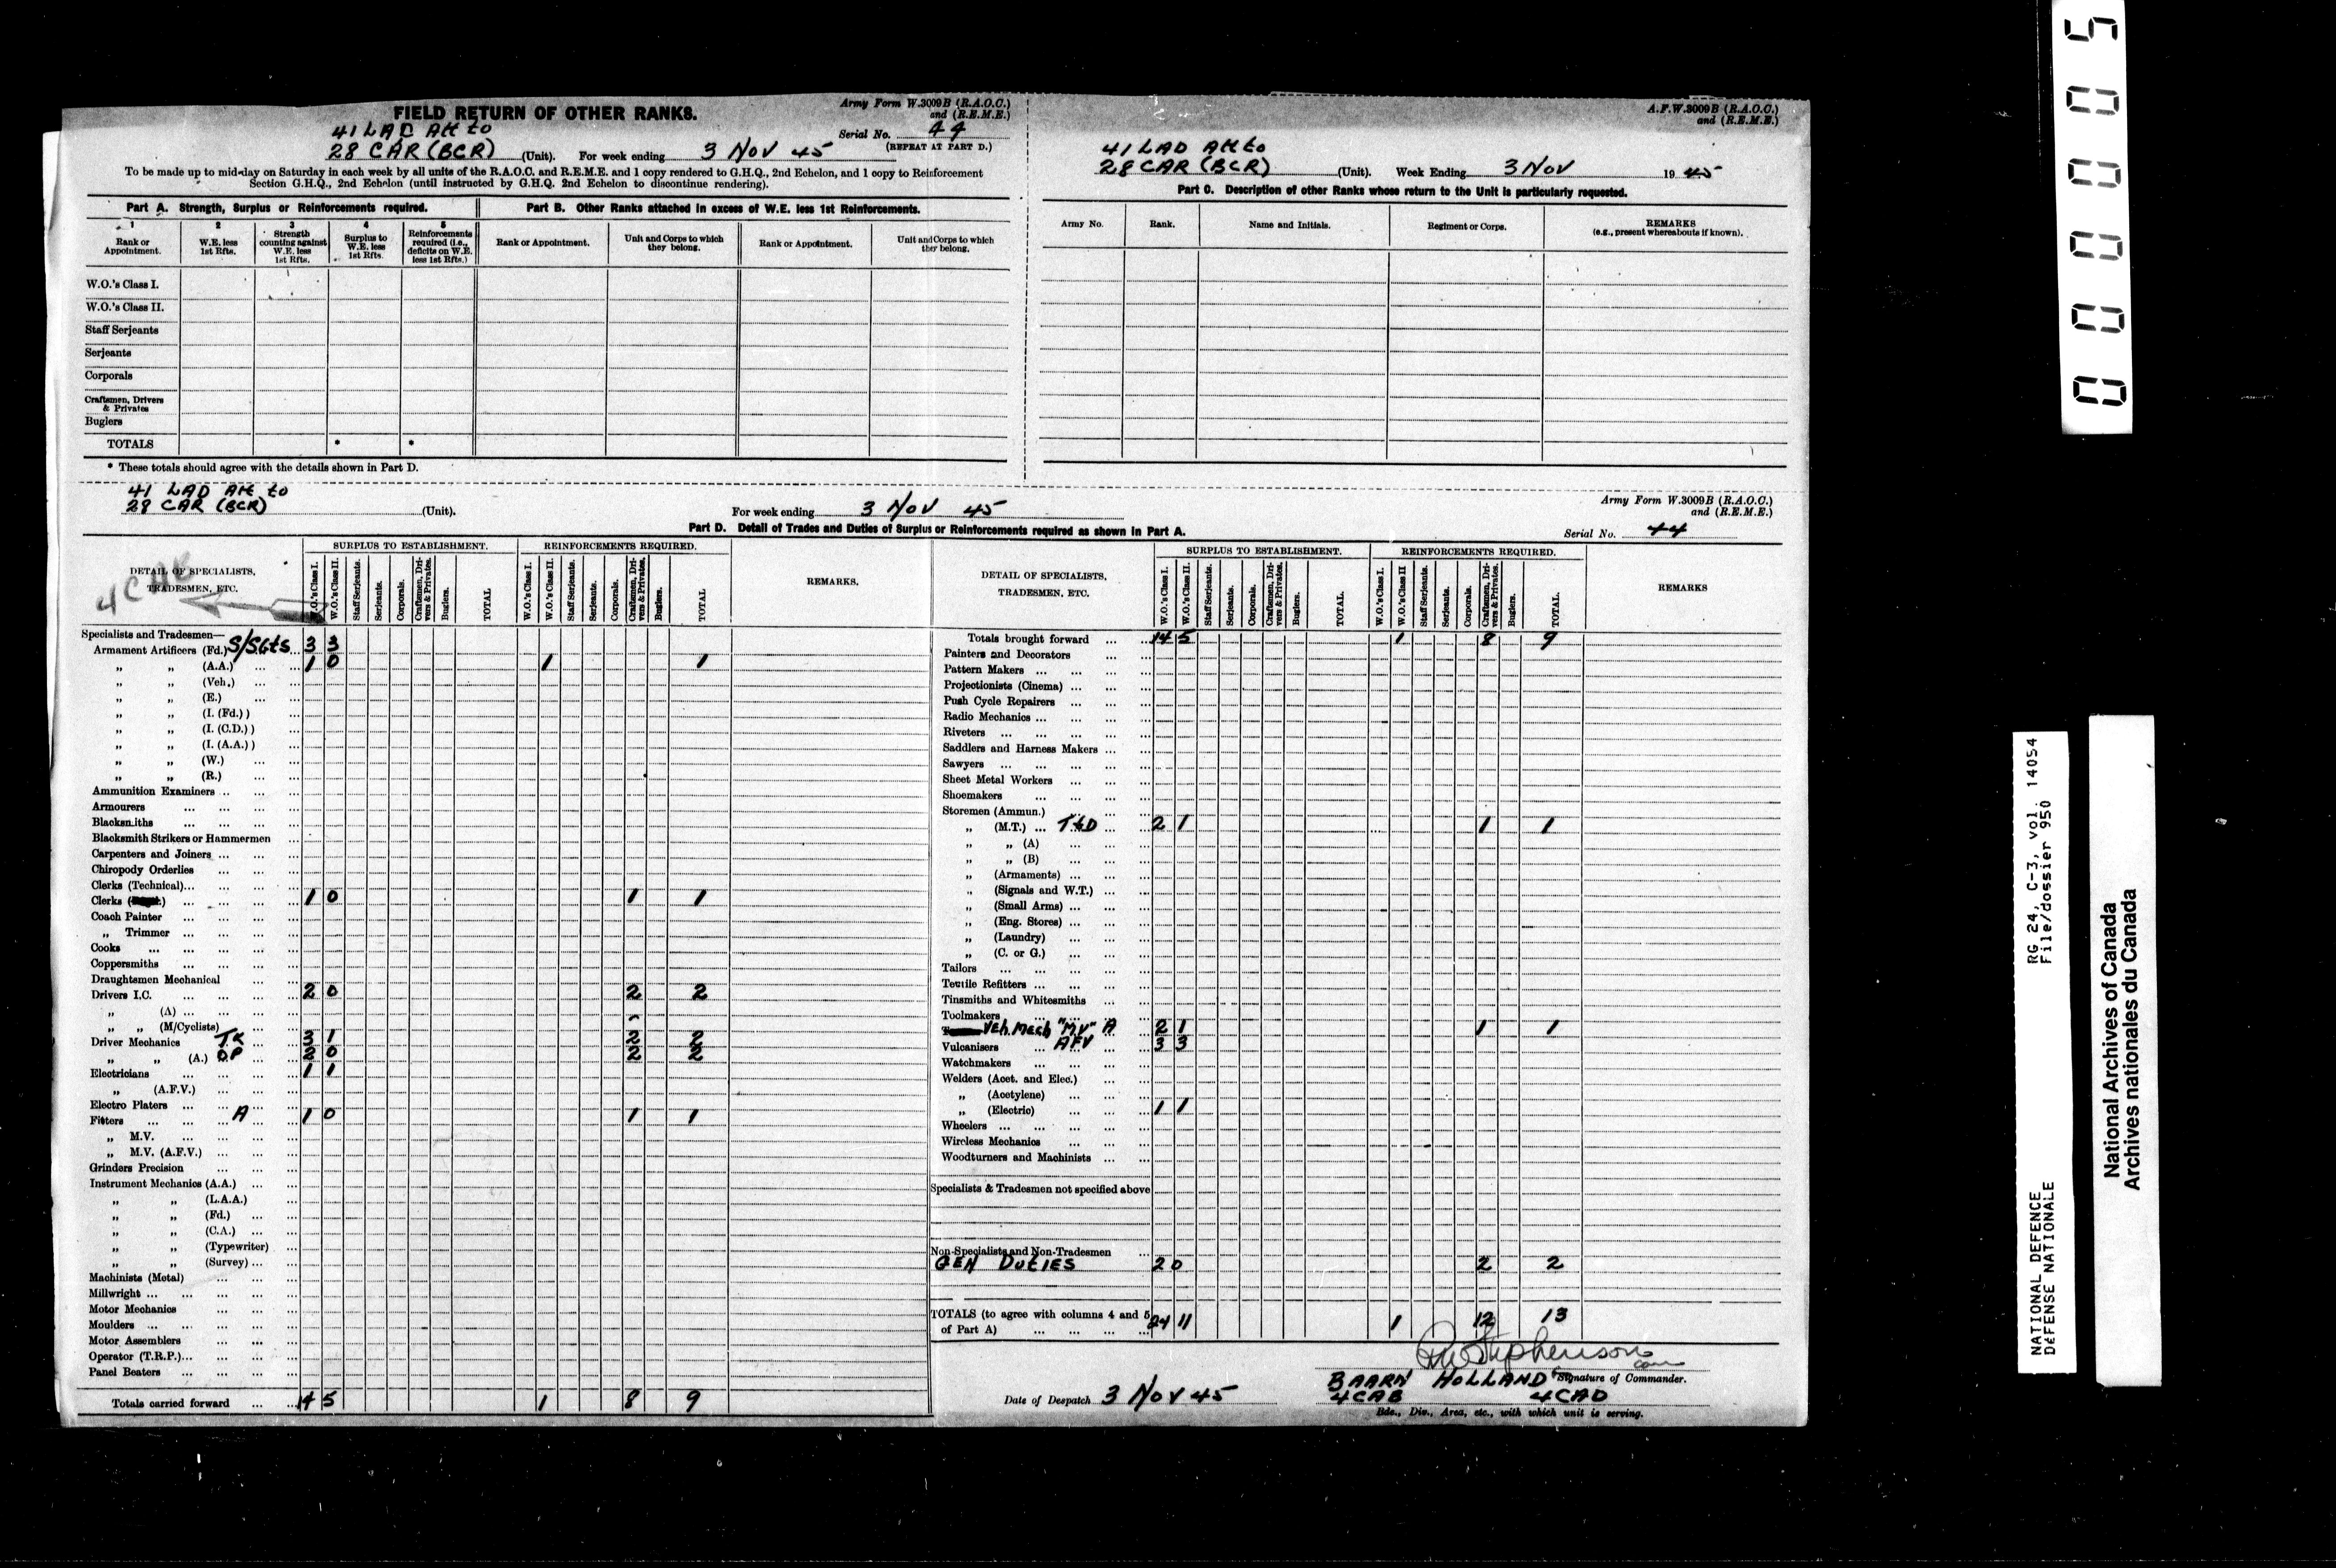 FIELD RETURN OF OTHER RANKS.
Army Form W.3009B (R.A.O.C.)
and (R.E.M.E.)
41 LAD Att to
Serial No. 44
28 CAR (BCR) (Unit). For week ending 3 NOV 45
(REPEAT AT PART D.)
To be made up to mid-day on Saturday in each week by all units of the R.A.O.C. and R.E.M.E. and 1 copy rendered to G.H.Q., 2nd Echelon, and 1 copy to Reinforcement
Section G.H.Q., 2nd Echelon (until instructed by G.H.Q. 2nd Echelon to discontinue rendering).
Part A. Strength, Surplus or Reinforcements required.
Part B. Other Ranks attached in excess of W.E. less 1st Reinforcements.
1 2 3 4 5
Rank or Appointment.
W.E. less 1st Rfts.
Strength counting against W.E. less 1st Rfts.
Surplus to W.E. less 1st Rfts.
Reinforcements required (i.e., deficits on W.E. less 1st Rfts.)
Rank or Appointment.
Unit and Corps to which they belong.
Rank or Appointment.
Unit and Corps to which they belong.
W.O.'s Class I.
W.O.'s Class II.
Staff Serjeants
Serjeants
Corporals
Craftsmen, Drivers
& Privates
Buglers
TOTALS * *
* These totals should agree with the details shown in Part D.
A.F.W.3009B (R.A.O.C.)
and (R.E.M.E.)
41 LAD Att to
28 CAR (BCR) (Unit). Week Ending 3 Nov 1945
Part C. Description of other Ranks whose return to the Unit is particularly requested.
Army No. Rank. Name and Initials. Regiment or Corps. REMARKS
(e.g., present whereabouts if known).
41 LAD Att to
28 CAR (BCR) (Unit).
For week ending 3 NOV 45
Army Form W.3009B (R.A.O.C.)
and (R.E.M.E.)
Part D. Detail of Trades and Duties of Surplus or Reinforcements required as shown in Part A.
Serial No. 44
SURPLUS TO ESTABLISHMENT. REINFORCEMENTS REQUIRED.
DETAIL OF SPECIALISTS,
TRADESMEN, ETC.
W.O.'s Class I. W.O.'s Class II. Staff Serjeants. Serjeants. Corporals. Craftsmen, Drivers & Privates. Buglers. TOTAL
W.O.'s Class I. W.O.'s Class II. Staff Serjeants. Serjeants. Corporals. Craftsmen, Drivers & Privates. Buglers. TOTAL
REMARKS.
Specialists and Tradesmen—
Armament Artificers (Fd.) S/Sgts 3 3
„ „ (A.A.) 1 0 1 1
„ „ (Veh.)
„ „ (E.)
„ „ (I. (Fd.))
„ „ (I. (C.D.))
„ „ (I. (A.A.))
„ „ (W.)
„ „ (R.)
Ammunition Examiners
Armourers
Blacksmiths
Blacksmith Strikers or Hammermen
Carpenters and Joiners
Chiropody Orderlies
Clerks (Technical)
Clerks 1 0 1 1
Coach Painter
„ Trimmer
Cooks
Coppersmiths
Draughtsmen Mechanical
Drivers I.C. 2 0 2 2
„ (A)
„ „ (M/Cyclists)
Driver Mechanics TK 3 1 2 2
„ „ (A.) OP 2 0 2 2
Electricians 1 1
„ (A.F.V.)
Electro Platers
Fitters A 1 0 1 1
„ M.V.
„ M.V. (A.F.V.)
Grinders Precision
Instrument Mechanics (A.A.)
„ „ (L.A.A.)
„ „ (Fd.)
„ „ (C.A.)
„ „ (Typewriter)
„ „ (Survey)
Machinists (Metal)
Millwright
Motor Mechanics
Moulders
Motor Assemblers
Operator (T.R.P.)
Panel Beaters
Totals carried forward 14 5 1 8 9
SURPLUS TO ESTABLISHMENT. REINFORCEMENTS REQUIRED.
DETAIL OF SPECIALISTS,
TRADESMEN, ETC.
W.O.'s Class I. W.O.'s Class II. Staff Serjeants. Serjeants. Corporals. Craftsmen, Drivers & Privates. Buglers. TOTAL.
W.O.'s Class I. W.O.'s Class II Staff Serjeants. Serjeants. Corporals. Craftsmen, Drivers & Privates. Buglers. TOTAL.
REMARKS
Totals brought forward 14 5 1 8 9
Painters and Decorators
Pattern Makers
Projectionists (Cinema)
Push Cycle Repairers
Radio Mechanics
Riveters
Saddlers and Harness Makers
Sawyers
Sheet Metal Workers
Shoemakers
Storemen (Ammun.)
„ (M.T.) 2 1 1 1
„ „ (A)
„ „ (B)
„ (Armaments)
„ (Signals and W.T.)
„ (Small Arms)
„ (Eng. Stores)
„ (Laundry)
„ (C. or G.)
Tailors
Textile Refitters
Tinsmiths and Whitesmiths
Toolmakers
Veh. Mech "MV" A 2 1 1 1
Vulcanisers AFV 3 3
Watchmakers
Welders (Acet. and Elec.)
„ (Acetylene)
„ (Electric) 1 1
Wheelers
Wireless Mechanics
Woodturners and Machinists
Specialists & Tradesmen not specified above
Non-Specialists and Non-Tradesmen
GEN DUTIES 2 0 2 2
TOTALS (to agree with columns 4 and 5
of Part A) 24 11 1 12 13
Stephenson
BAARN HOLLAND Signature of Commander.
Date of Despatch 3 NOV 45
4CAB 4CAD
Bde., Div., Area, etc., with which unit is serving.
00005
RG 24, C-3, vol. 14054
File/dossier 950
NATIONAL DEFENCE
DÉFENSE NATIONALE
National Archives of Canada
Archives nationales du Canada